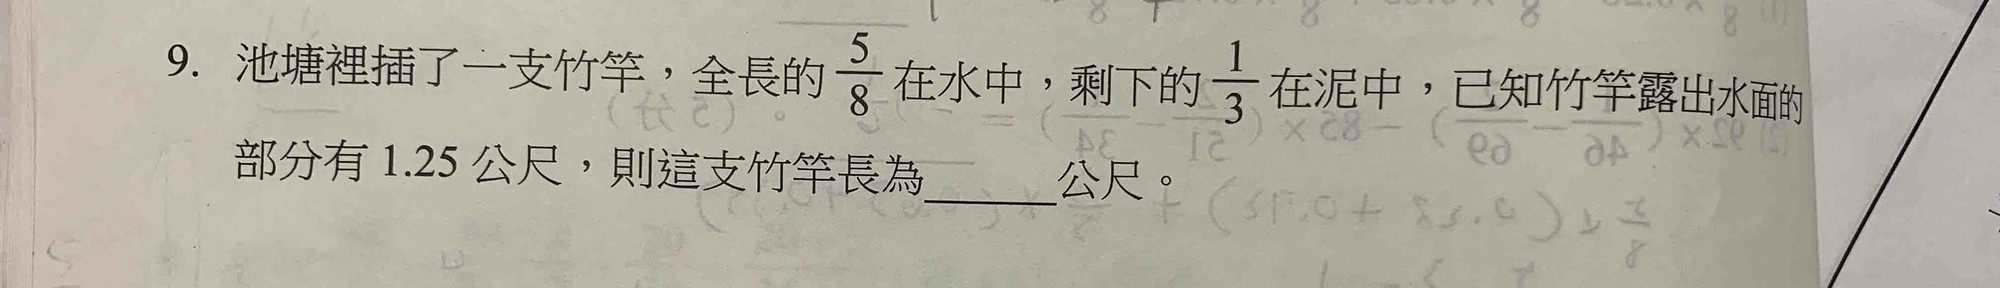 9. 池塘裡插了一支竹竿，全長的 5/8 在水中，剩下的 1/3 在泥中，已知竹竿露出水面的
部分有 1.25 公尺，則這支竹竿長為______公尺。